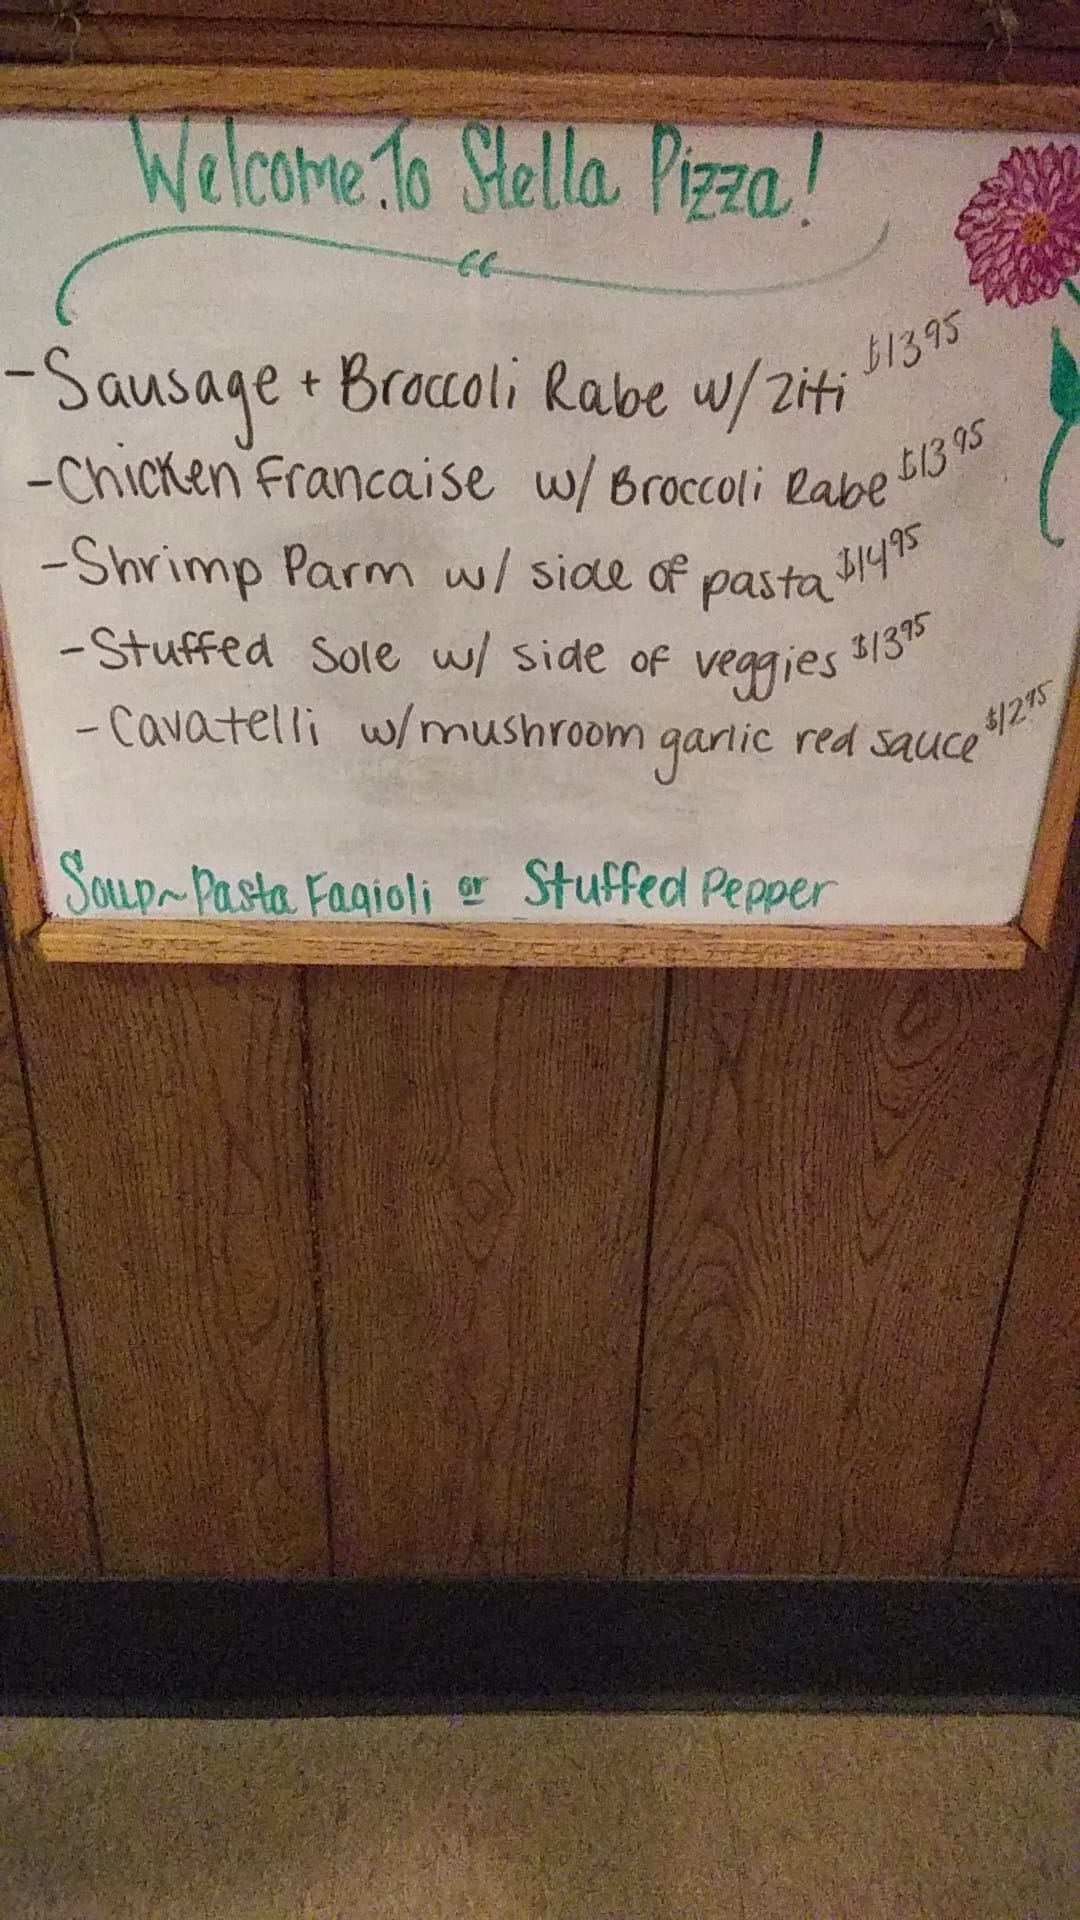 Welcome To Stella Pizza!
- Sausage + Broccoli Rabe w/ Ziti $13.95
- Chicken Francaise w/ Broccoli Rabe $13.95
- Shrimp Parm w/ side of pasta $14.95
- Stuffed Sole w/ side of veggies $13.95
- Cavatelli w/ mushroom garlic red sauce $12.95
Soup~ Pasta Fagioli or Stuffed Pepper